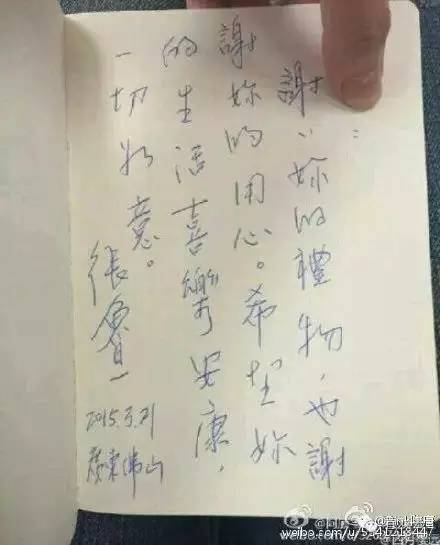 ：
謝〻妳的禮物，也謝
謝妳的用心。希望妳
的生活喜樂安康，
一切如意。
張魯一
2015.3.21
廣東佛山